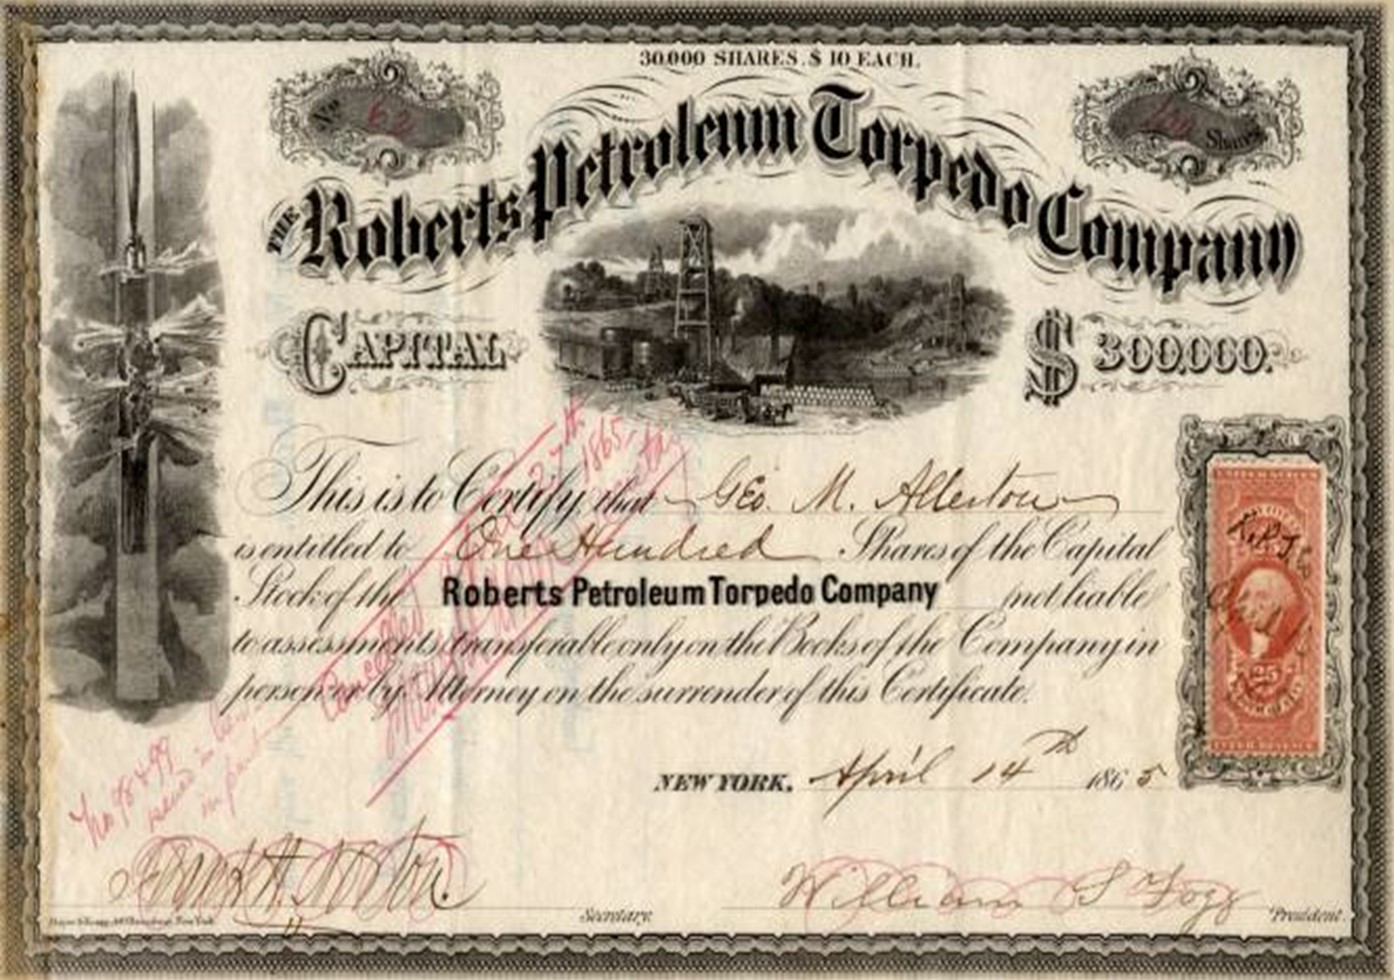 30.000 SHARES. $ 10 EACH.
No 62
100 Shares
THE Roberts Petroleum Torpedo Company
CAPITAL $ 300.000.
This is to Certify, that Geo. M. Allerton
is entitled to One Hundred Shares of the Capital
Stock of the Roberts Petroleum Torpedo Company not liable
to assessments, transferable only on the Books of the Company in
person or by Attorney on the surrender of this Certificate.
NEW YORK. April 14th 1865
27th
1865
Cancelled
No 98 & 99
issued in
in part
25
Secretary
William S Fogg President